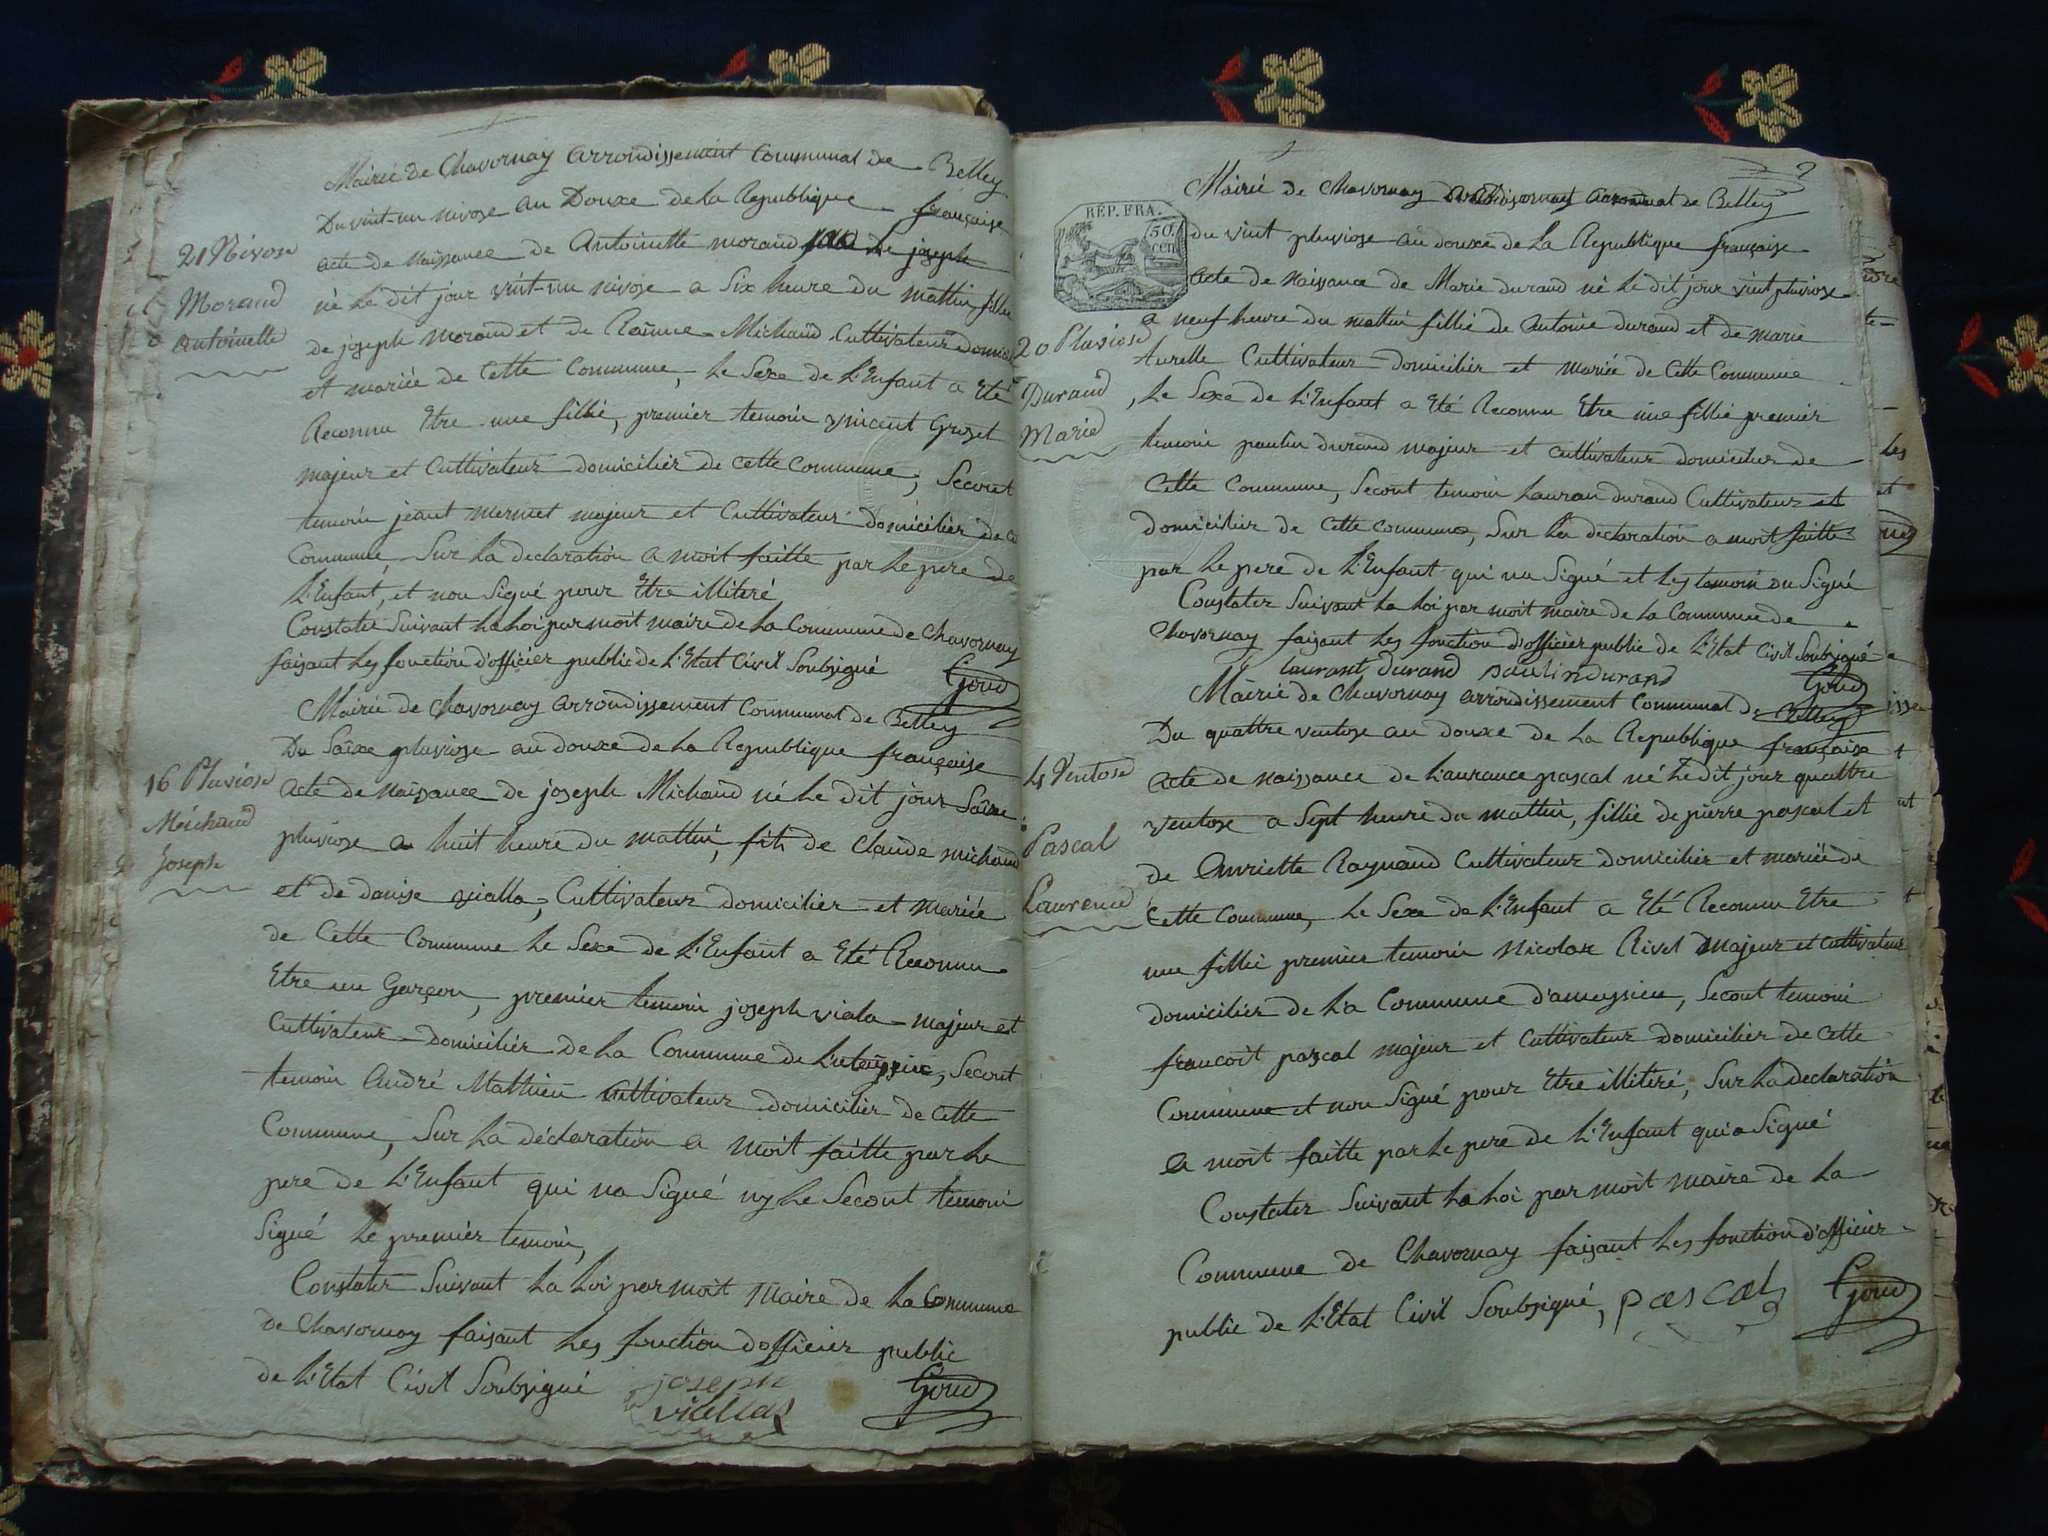 Mairie de Chavornay arrondissement Communal de Belley
Du vint-un nivose an Douze de la Republique française
acte de Naissance de Antoinette morand de joseph
né Le dit jour vint-un nivose a Six heure du mattin fillie
de joseph morand et de Michaud Cultivateur
et mariée de Cette Commune, Le Sexe de L'Enfant a Eté
Reconnu Etre une fillie, premier temoin vincent Groset
majeur et Cultivateur domicilier de cette commune, Secont
temoin jeant mermet majeur et Cultivateur domicilier de
Commune, Sur La declaration a moit faitte par Le pere de
L'Enfant, et non Signé pour Etre illiteré
Constater Suivant La Loi par moit maire de La Commune de Chavornay
faisant Les fonction d'officier public de L'Etat Civil Soubsigné Goud
21 Nivose
Morand
Antoinette
Mairie de Chavornay arrondissement Communal de Belley
Du Saixe pluviose an douxe de La Republique française
Acte de Naissance de joseph Michaud né Le dit jour Saixe
pluviose a huit heure du mattin, fils de Claude michaud
et de denise vialla, Cultivateur domicilier et mariée
de Cette Commune Le Sexe de L'Enfant a Eté Reconnu
Etre un Garçon, premier temoin joseph viala majeur et
Cultivateur domicilier de La Commune de, Secont
temoin André Mathieu Cultivateur domicilier de Cette
Commune, Sur La déclaration a moit faitte par Le
pere de L'Enfant qui na Signé ny Le Secont temoin
Signé Le premier temoin,
Constater Suivant La Loi par moit Maire de La Commune
de Chavornay faisant Les fonction dofficier public
de L'Etat Civil Soubsigné joseph viallas Goud
16 Pluviose
Michaud
Joseph
Mairie de Chavornay de Belley
REP. FRA.
50.
cen.
du vint pluviose an douxe de La Republique française
Acte de Naissance de Marie durand né Le dit jour vint pluviose
a neuf heure du mattin fillie de Antoine durand et de marie
Aurelle Cultivateur domicilier et mariée de Cette Commune
, Le Sexe de L'Enfant a Eté Reconnu Etre une fillie premier
temoin paulin durand majeur et cultivateur domicilier de
Cette Commune, Secont temoin Lauran durand Cultivateur et
domicilier de Cette commune, Sur La declaration a moit faitte
par Le pere de L'Enfant qui na Signé et Les temoin on Signé
Constater Suivant La Loi par moit maire de La Commune de
Chavornay faisant Les fonction d'officier public de L'Etat Civil Soubsigné
laurant durand paulin durand Goud
20 Pluviose
Durand
Marie
Mairie de Chavornay arrondissement Communal de Belley
Du quattre ventose an douxe de La Republique française
Acte de naissance de Laurance pascal né Le dit jour quattre
ventose a Sept heure du mattin, fillie de pierre pascal et
de Anriette Raynaud Cultivateur domicilier et mariée de
Cette Commune, Le Sexe de L'Enfant a Eté Reconnu Etre
une fillie premier temoin Nicolas Rivet Majeur et Cultivateur
domicilier de La Commune d'ameysieu, Secont temoin
francoit pascal majeur et Cultivateur domicilier de Cette
Commune et non Signé pour Etre illiteré, Sur La declaration
a moit faitte par Le pere de L'Enfant qui a Signé
Constater Suivant La Loi par moit maire de La
Commune de Chavornay faisant Les fonction d'officier
public de L'Etat Civil Soubsigné, pascal Goud
4 Ventose
Pascal
Laurence